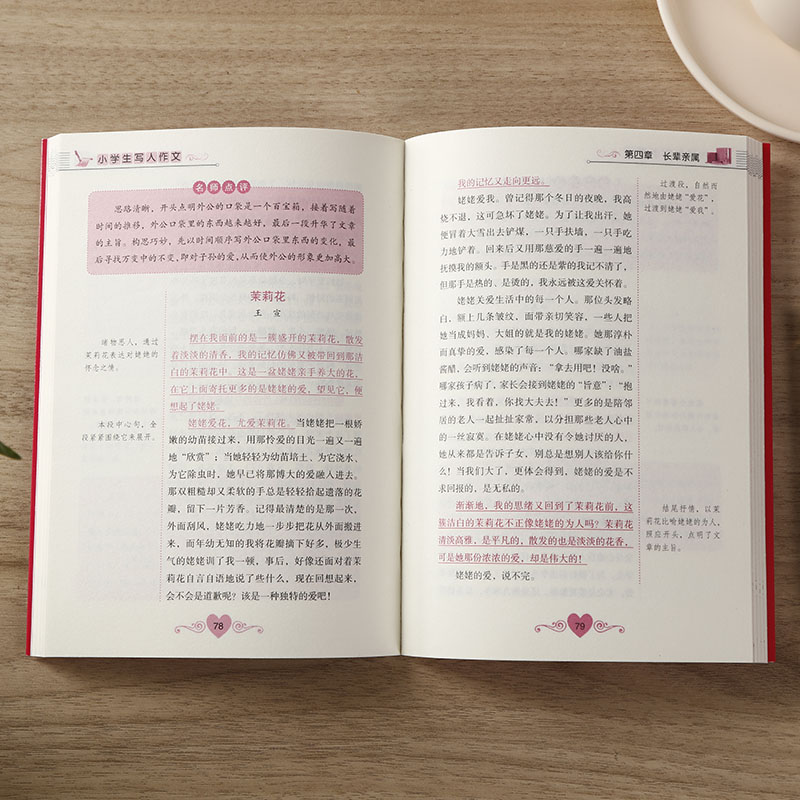 小学生写人作文
名师点评
思路清晰，开头点明外公的口袋是一个百宝箱，接着写随着
时间的推移，外公口袋里的东西越来越好，最后一段升华了文章
的主旨。构思巧妙，先以时间顺序写外公口袋里东西的变化，最
后寻找万变中的不变，即对子孙的爱，从而使外公的形象更加高大。
茉莉花
王 宣
睹物思人，通过
茉莉花表达对姥姥的
怀念之情。
摆在我面前的是一簇盛开的茉莉花，散发
着淡淡的清香，我的记忆仿佛又被带回到那洁
白的茉莉花中。这是一盆姥姥亲手养大的花，
在它上面寄托更多的是姥姥的爱，望见它，便
想起了姥姥。
本段中心句，全
段紧紧围绕它来展开。
姥姥爱花，尤爱茉莉花。当姥姥把一根娇
嫩的幼苗接过来，用那怜爱的目光一遍又一遍
地“欣赏”；当她轻轻为幼苗培土、为它浇水、
为它除虫时，她早已将那博大的爱融人进去。
那双粗糙却又柔软的手总是轻轻拾起遗落的花
瓣，留下一片芳香。记得最清楚的是那一次，
外面刮风，姥姥吃力地一步步把花从外面搬进
来，而年幼无知的我将花瓣摘下好多，极少生
气的姥姥训了我一顿，事后，好像还面对着茉
莉花自言自语地说了些什么，现在回想起来，
会不会是道歉呢？该是一种独特的爱吧！
78
第四章 长辈亲属
我的记忆又走向更远。
过渡段，自然而
然地由姥姥“爱花”，
过渡到姥姥“爱我”。
姥姥爱我。曾记得那个冬日的夜晚，我高
烧不退，这可急坏了姥姥。为了让我出汗，她
便冒着大雪出去铲煤，一只手扶墙，一只手吃
力地铲着。回来后又用那慈爱的手一遍一遍地
抚摸我的额头。手是黑的还是紫的我记不清了，
但那手是热的、是烫的，我永远被这爱关怀着。
姥姥关爱生活中的每一个人。那位头发略
白，额上几条皱纹，面带亲切笑容，一些人把
她当成妈妈、大姐的就是我的姥姥。她那淳朴
而真挚的爱，感染了每一个人。哪家缺了油盐
酱醋，会听到姥姥的声音：“拿去用吧！没啥。”
哪家孩子病了，家长会接到姥姥的“旨意”：“抱
过来，我看着，你找大夫去！”更多的是陪邻
居的老人一起扯扯家常，以分担那些老人心中
的一丝寂寞。在姥姥心中没有令她讨厌的人，
她从来都是告诉子女，别总是想别人该给你什
么！当我们大了，更体会得到，姥姥的爱是不
求回报的，是无私的。
渐渐地，我的思绪又回到了茉莉花前，这
簇洁白的茉莉花不正像姥姥的为人吗？茉莉花
清淡高雅，是平凡的，散发的也是淡淡的花香，
可是她那份浓浓的爱，却是伟大的！
结尾抒情，以茉
莉花比喻姥姥的为人，
照应开头，点明了文
章的主旨。
姥姥的爱，说不完。
79